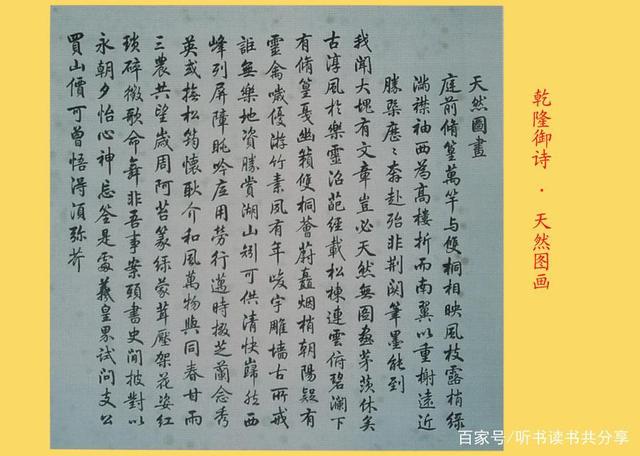 乾隆御诗 · 天然图画
天然圖畫
庭前脩篁萬竿与雙桐相映風枝露梢綠
满襟袖西為高樓折而南翼以重榭遠近
勝槩歷々奔赴殆非荊関筆墨能到
我聞大塊有文章豈必天然無圖畫茅茨休矣
古淳風於樂靈沼葩經載松棟連雲俯碧瀾下
有脩篁戛幽籟雙桐薈蔚矗烟梢朝陽疑有
靈禽噦優游竹素夙有年峻宇雕墙古所戒
詎無樂地資勝賞湖山矧可供清快巋然西
峰列屏障眺吟底用勞行邁時掇芝蘭念秀
英或撫松筠懷耿介和風萬物與同春甘雨
三農共望歲周阿苔篆綠蒙茸壓架花姿紅
瑣碎徵歌命舞非吾事案頭書史閒披對以
永朝夕怡心神忘筌是處羲皇界試問支公
買山價可曾悟得須弥芥
百家号/听书读书共分享